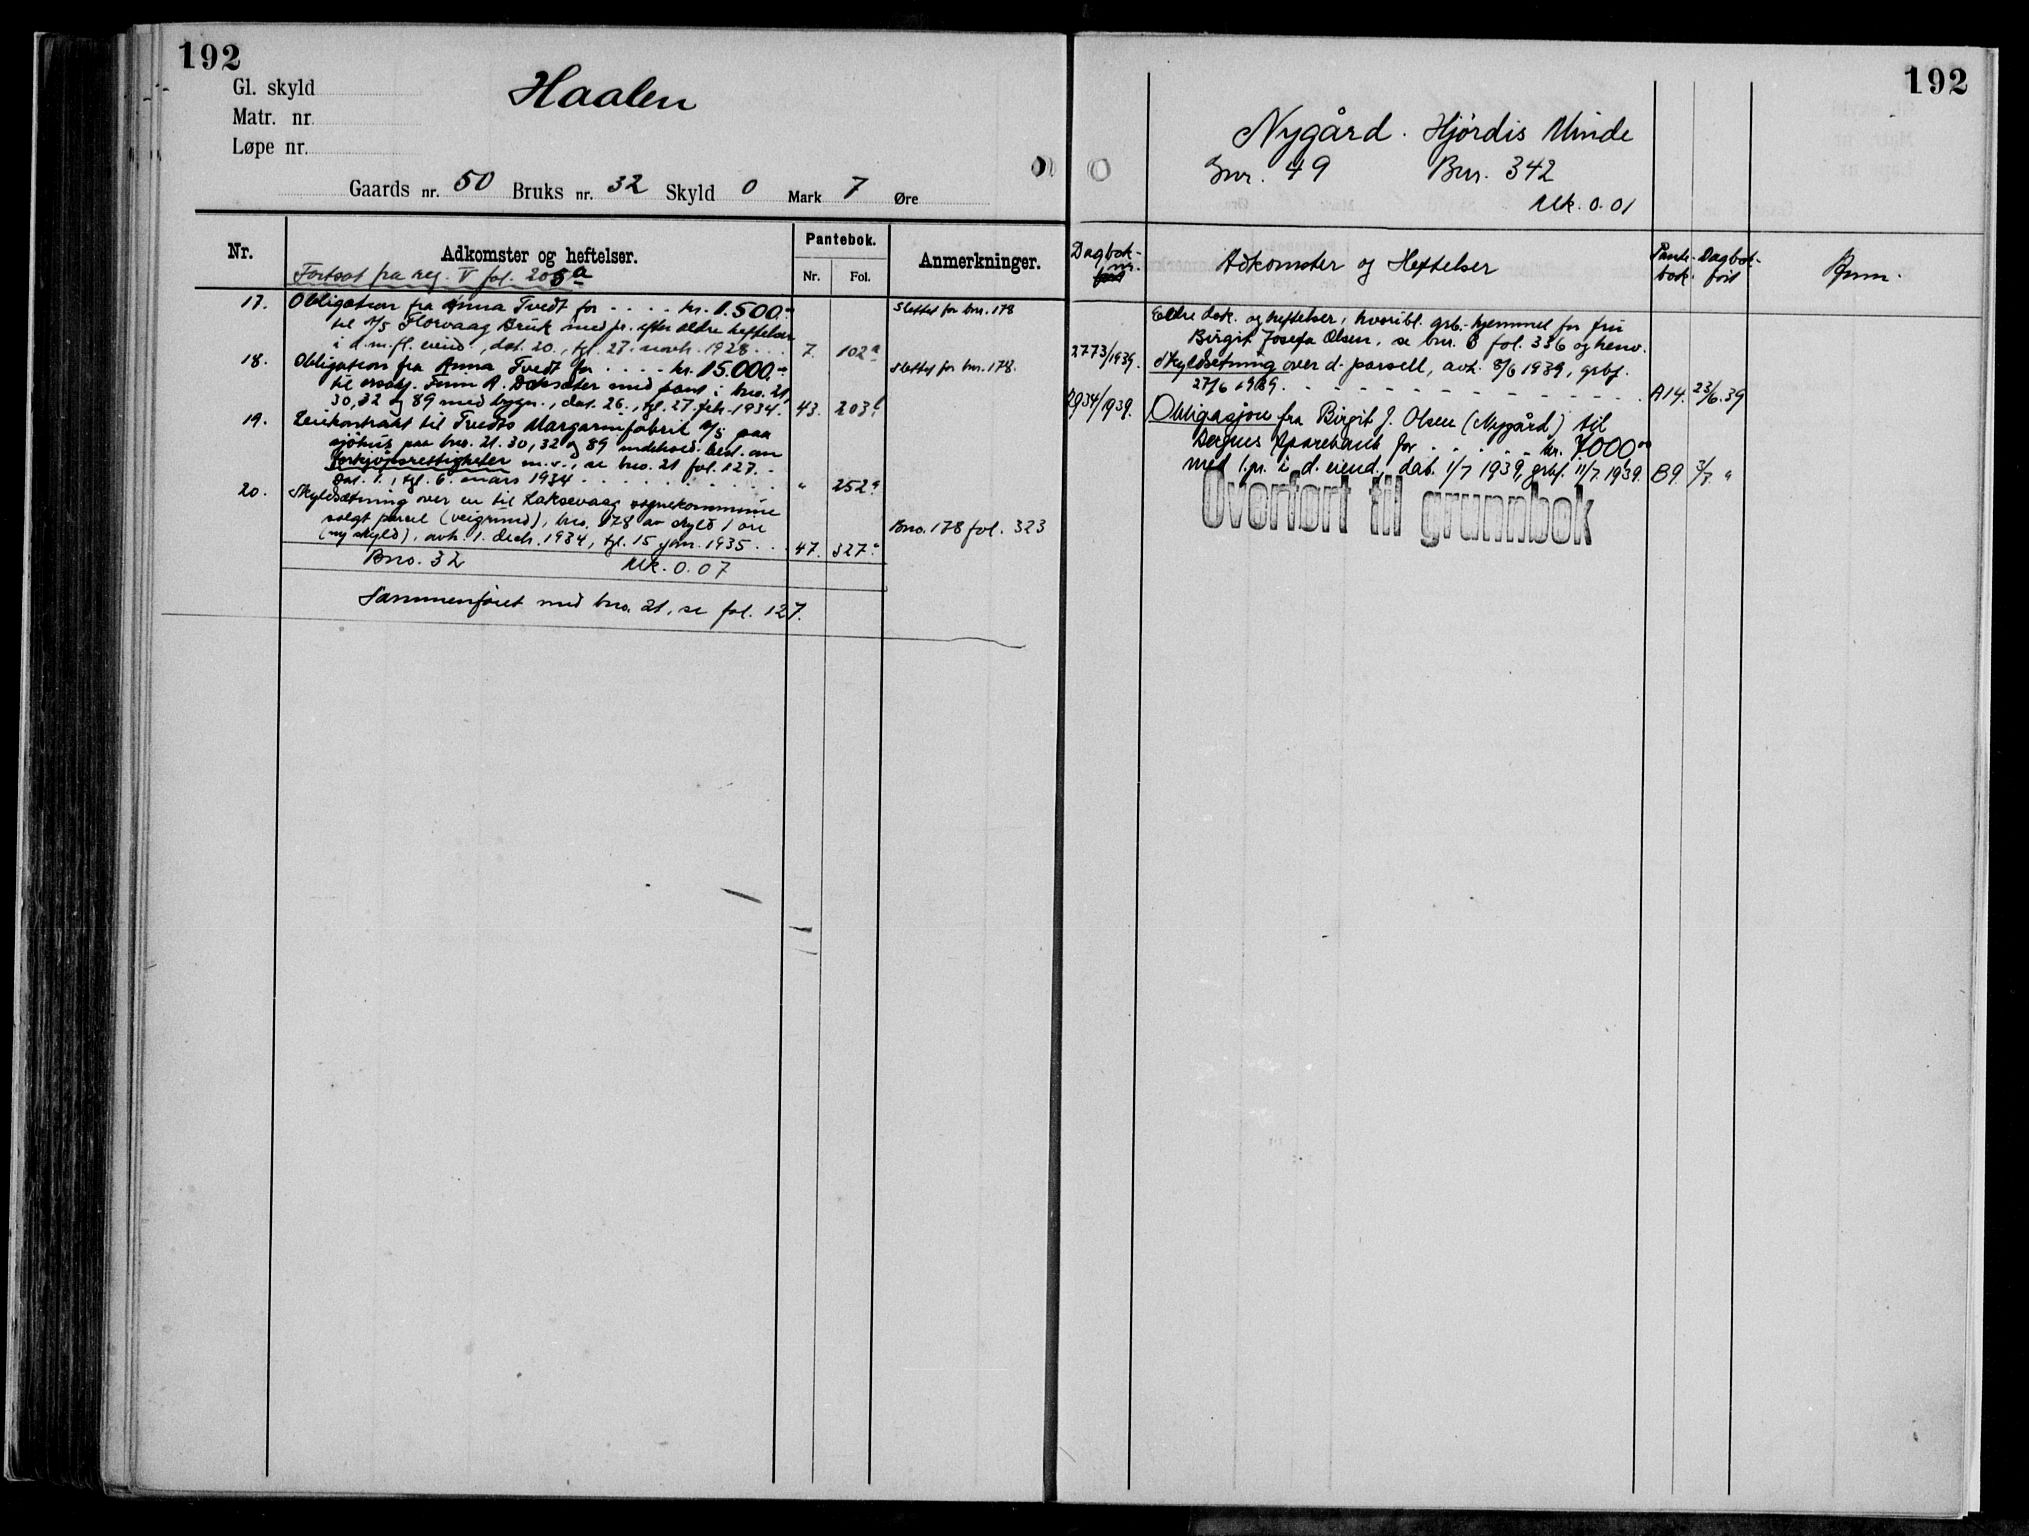 192
Gl. skyld
Matr. nr.
Løpe nr.
Haalen
Gaards nr. 50 Bruks nr. 32 Skyld 0 Mark 7 Øre
Nr.
Adkomster og heftelser.
Pantebok.
Nr. Fol.
Anmerkninger.
Fortsat fra reg. V fol. 205a
17. Obligation fra Anna Tvedt for . . . . kr. 1.500.-
til A/S Florvaag Bruk med pr. efter ældre heftelser
i d. m. fl. eiend., dat. 20., tgl. 27. novb. 1928 . . . 7. 102a
Slettet for bno. 178
18. Obligation fra Anna Tvedt for . . . . kr. 15.000.-
til ersatg. Finn R. med pant i bno. 21,
30, 32 og 89 med bygn., dat. 26., tgl. 27. feb. 1934. 43. 203a
Slettet for bno. 178.
19. Leiekontrakt til Tvedts Margarinfabrik A/S paa
sjøhus paa bno. 21. 30, 32 og 89 indehold. best. om
forkjøpsrettigheter m.v., se bno. 21 fol. 127.
Dat. 1., tgl. 6. mars 1934 . . . . . . . . . " 252a
20. Skyldsætning over en til Laksevaag sognekommune
solgt parcel (veigrund), bno. 178 av skyld 1 øre
(ny skyld), avh. 1. decb. 1934, tgl. 15 jan. 1935 . . . 47. 327a
Bno. 178 fol. 323
Bno. 32 Mk. 0.07
Sammenføiet med bno. 21, se fol. 127.
192
Nygård. Hjørdis Minde
Gnr. 49 Bnr. 342
Mk. 0.01
Dagbok-
nr.
Adkomster og Heftelser
Pante-
bok.
Dagbok-
ført
Anm.
Eldre dok. og heftelser, hvoribl. grb.-hjemmel for fru
Birgit Josefa Olsen, se bnr. 6 fol. 336 og henv.
2773/1939. Skyldsetning over d. parsell, avh. 8/6 1939, grbf.
27/6 1939. . . . . . . . . . . A14. 23/6.39
2934/1939. Obligasjon fra Birgit J. Olsen (Nygård) til
Bergens Sparebank for . . . . . kr. 7000.00
med 1. pr. i d. eiend., dat. 1/7 1939, grbf. 11/7. 1939. B9. 3/7 "
Overført til grunnbok